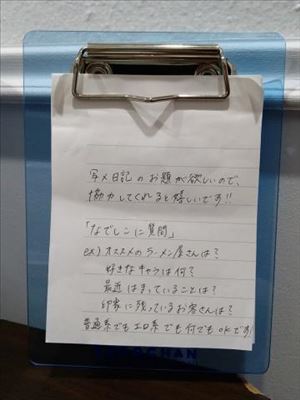 写メ日記のお題が欲しいので、
協力してくれると嬉しいです!!
「なでしこに質問」
ex) オススメのラーメン屋さんは?
好きなキャラは何?
最近はまっていることは?
印象に残っているお客さんは?
普通系でもエロ系でも何でもokです!